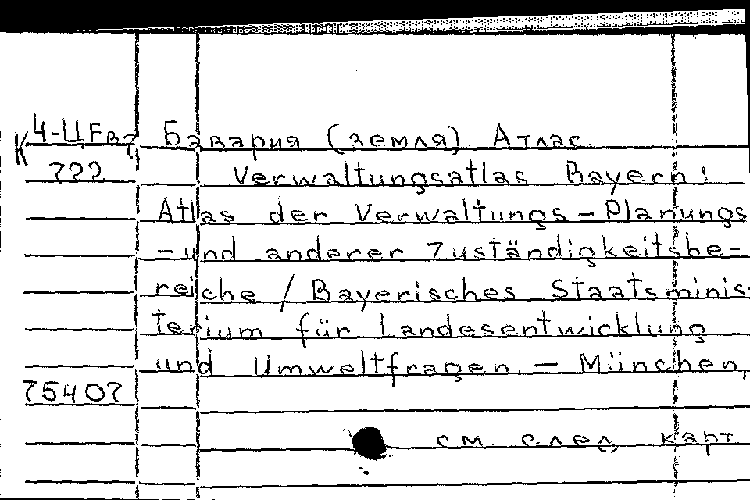 К 4-ЦFвд Бавария (земля) Атлас
222 Verwaltungsatlas Bayern:
Atlas der Verwaltungs-Planungs
-und anderer Zuständigkeitsbe-
reiche / Bayerisches Staatsminis-
terium für Landesentwicklung
und Umweltfragen. - München,
75407
см. след. карт